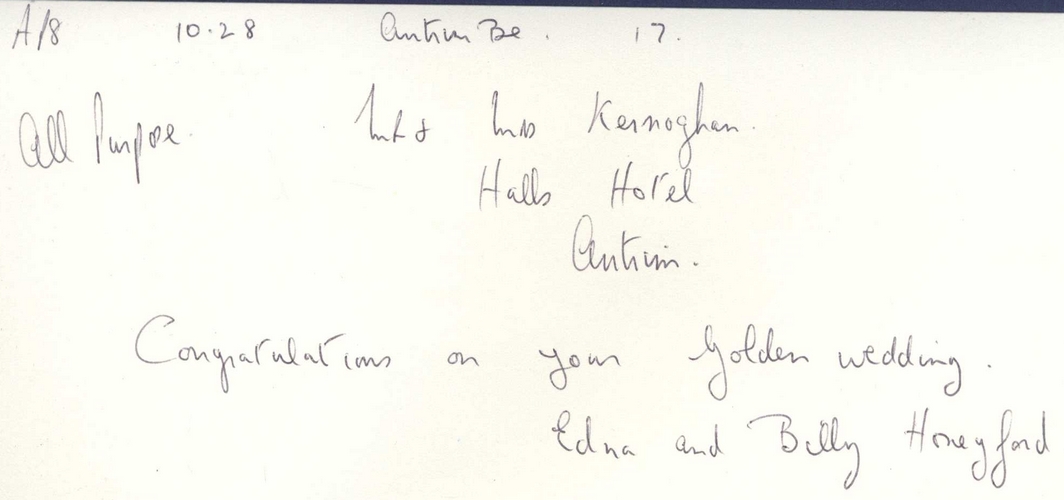 A/8 10.28 Antrim Be. 17.
All Purpose Mr & Mrs Kernoghan.
Halls Hotel
Antrim.
Congratulations on your Golden wedding.
Edna and Billy Honeyford